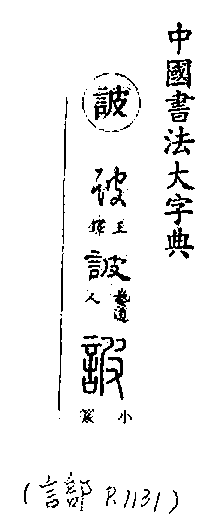 中國書法大字典
詖
詖
王鐸
詖
藝道人
詖
小篆
(言部 P.1131)